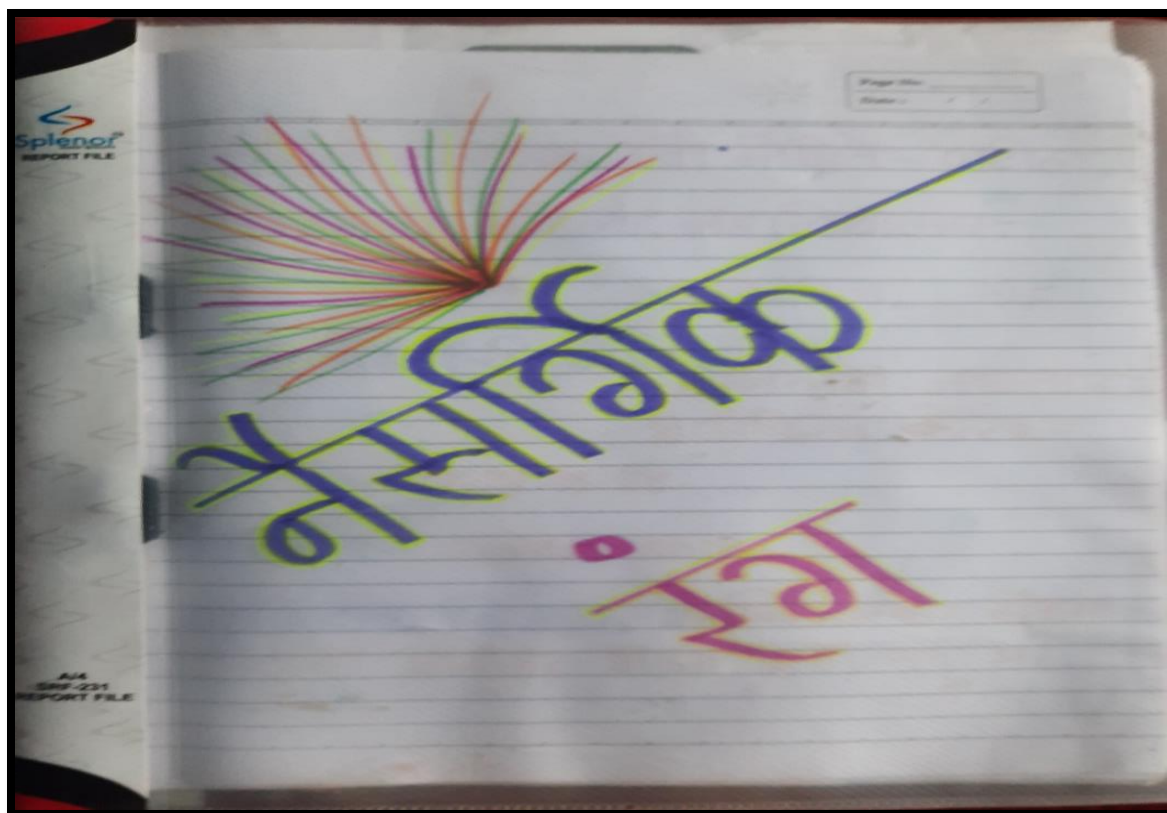 Splenor
REPORT FILE
Page No.
Date :
नैसर्गिक
रंग
A/4
SRF-231
REPORT FILE